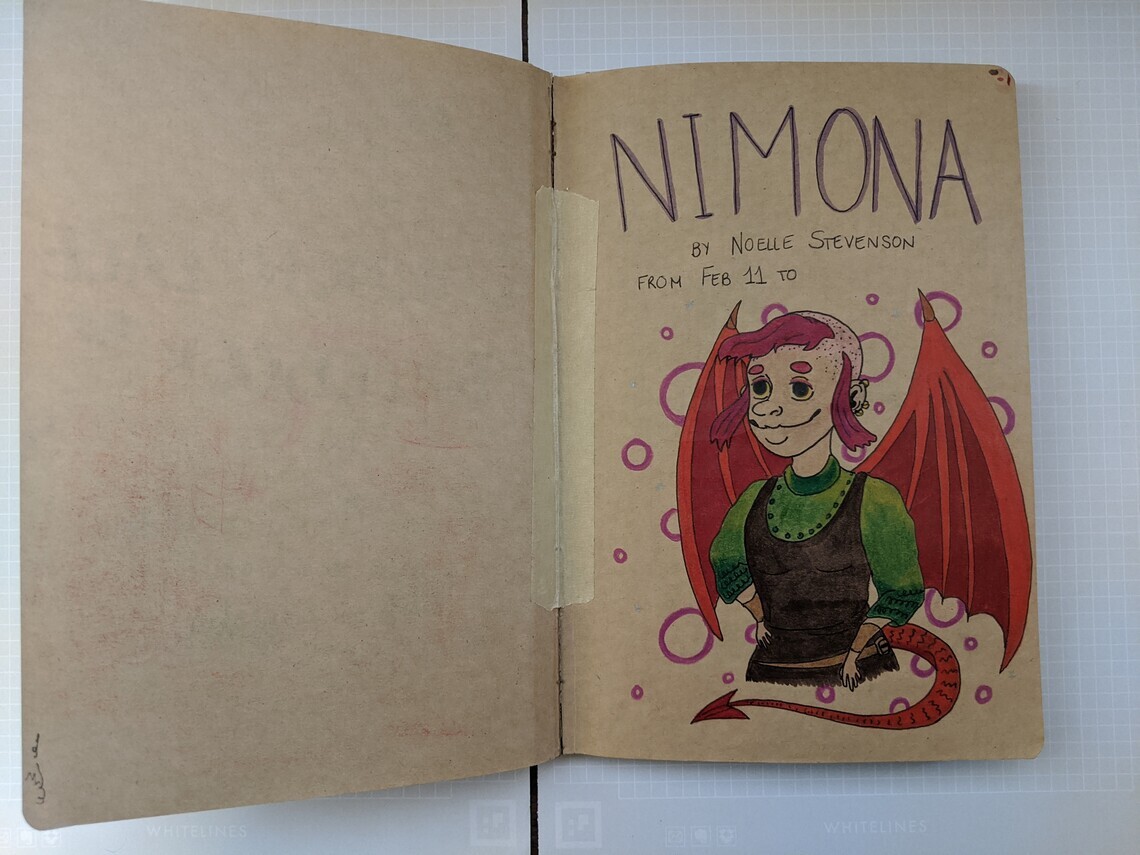 NIMONA
BY NOELLE STEVENSON
FROM FEB 11 TO
WHITELINES
WHITELINES